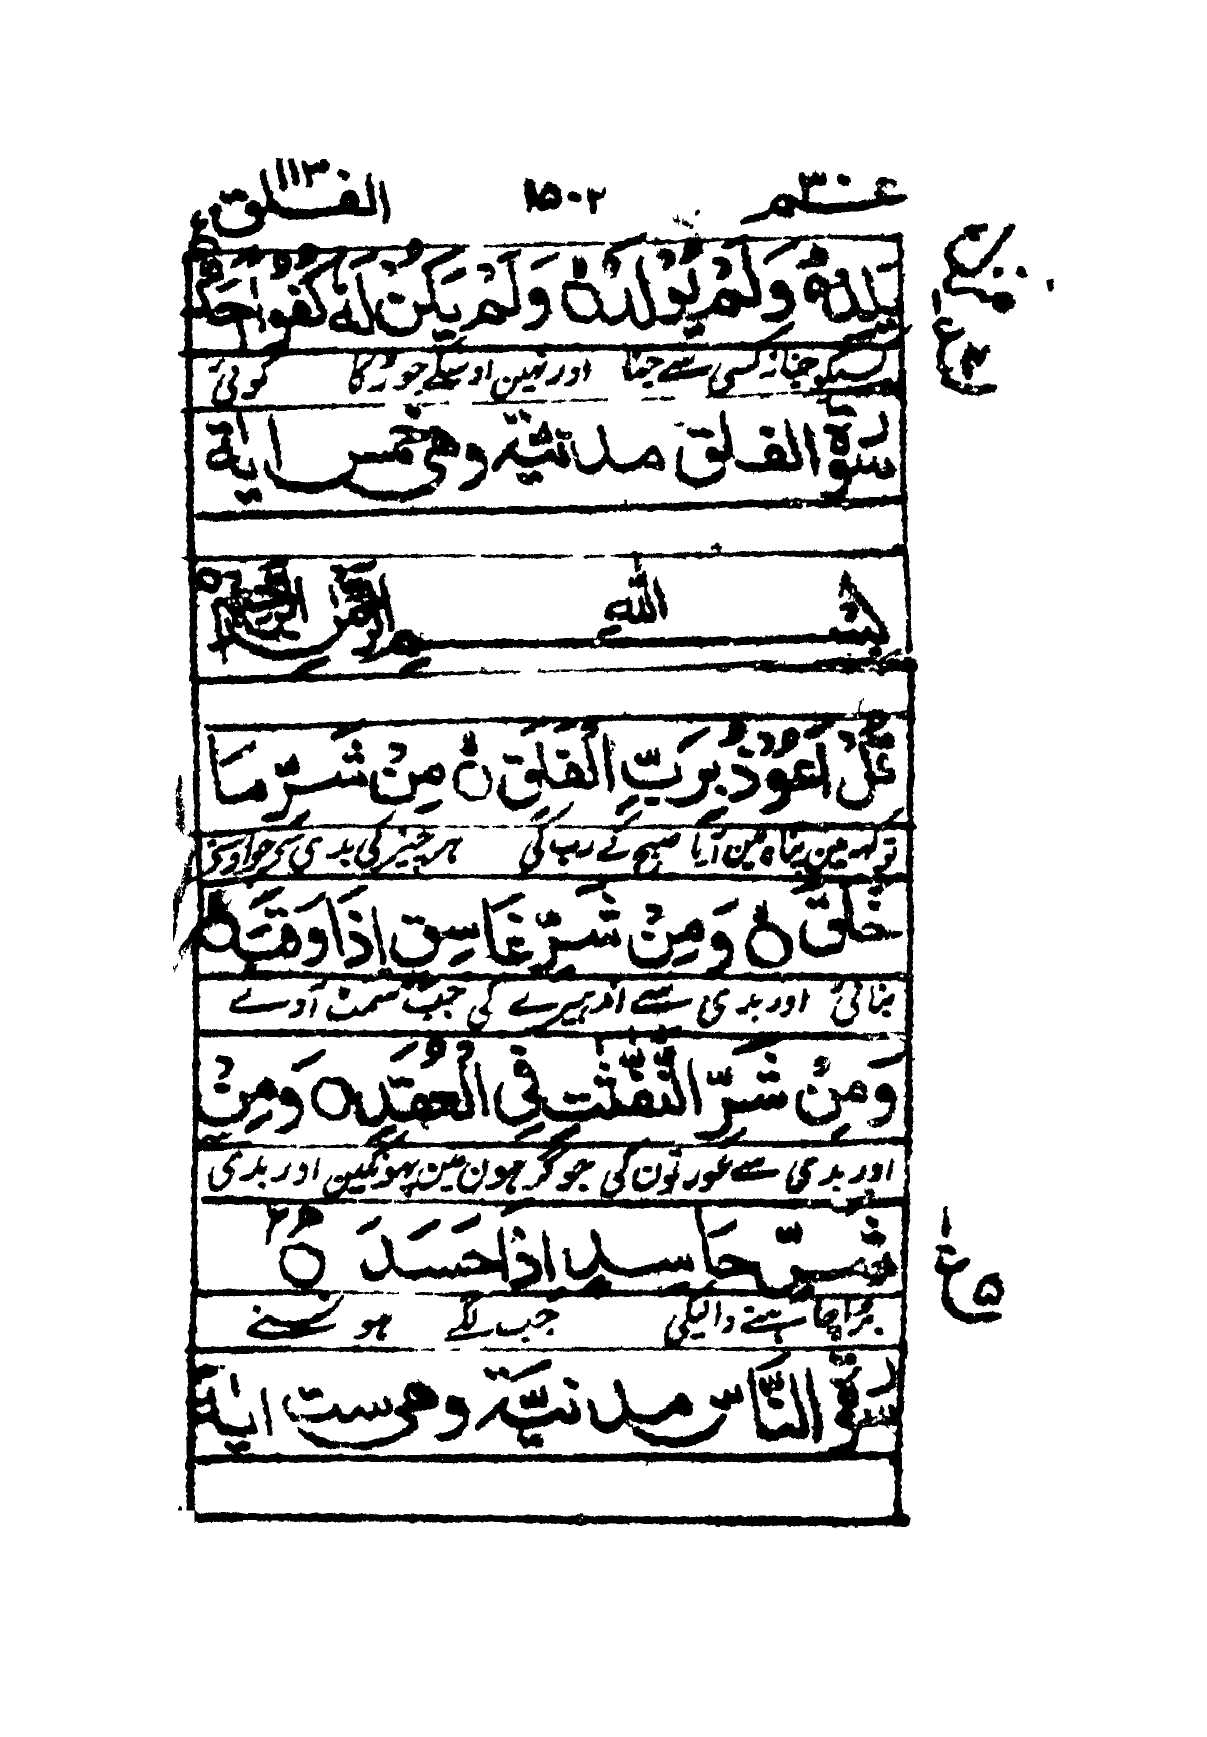 عــم۳۰ ۱۵۰۲ الفــلق ۱۱۳
يَلِدْ ۙ وَلَمْ يُوْلَدْ ۙ وَلَمْ يَكُنْ لَّهٗ كُفُوًا اَحَدٌ
کسیکو جنا نہ کسی سے جنا اور نہین اوسکے جوڑ کا کوئی
سورة الفلق مدنیّة وهی خمس اٰیة
بســــم الله الرحمن الرحيم
قُلْ اَعُوْذُ بِرَبِّ الْفَلَقِ ۙ مِنْ شَرِّ مَا
تو کہہ مین پناہ مین آیا صبح کے رب کی ہر چیز کی بدی سی جو اوسنی
خَلَقَ ۙ وَمِنْ شَرِّ غَاسِقٍ اِذَا وَقَبَ ۙ
بنائی اور بدی سے اندہیرے کی جب سمٹ آوے
وَمِنْ شَرِّ النَّفّٰثٰتِ فِی الْعُقَدِ ۙ وَمِنْ
اور بدی سے عورتون کی جو گرہون مین پہونکین اور بدی
شَرِّ حَاسِدٍ اِذَا حَسَدَ ۠
برا چاہنے والیکی جب لگے ہونسنے
سورة النّاس مدنیّة وهی ست اٰیة